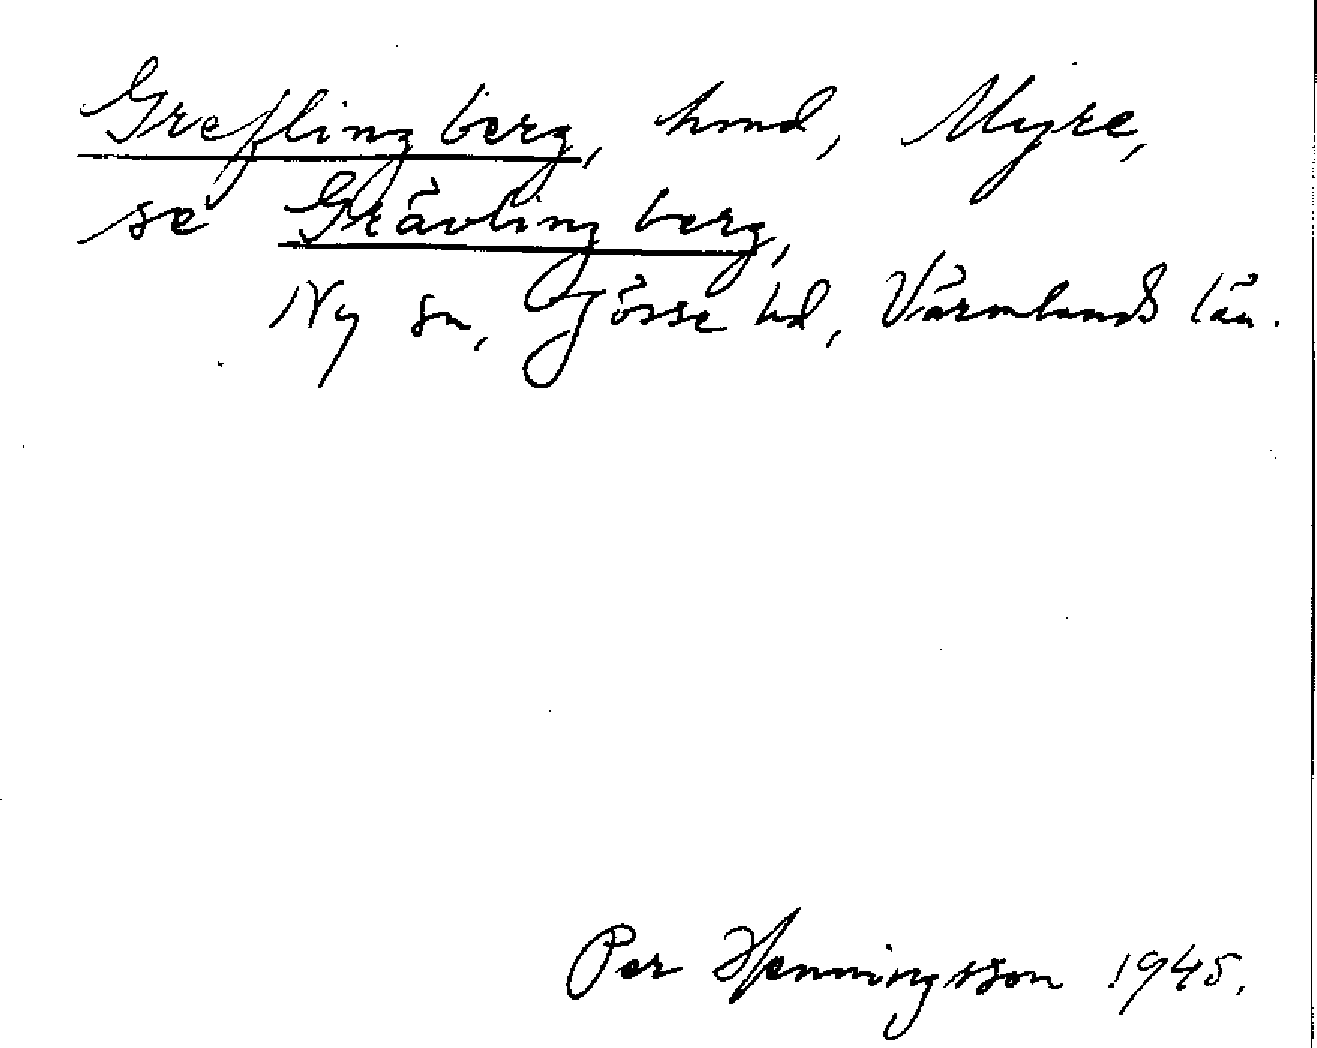 Grefling berg, hmd, Myre,
se Grävling berg,
Ny sn, Jösse hd, Värmlands län.
Per Henningsson 1945.